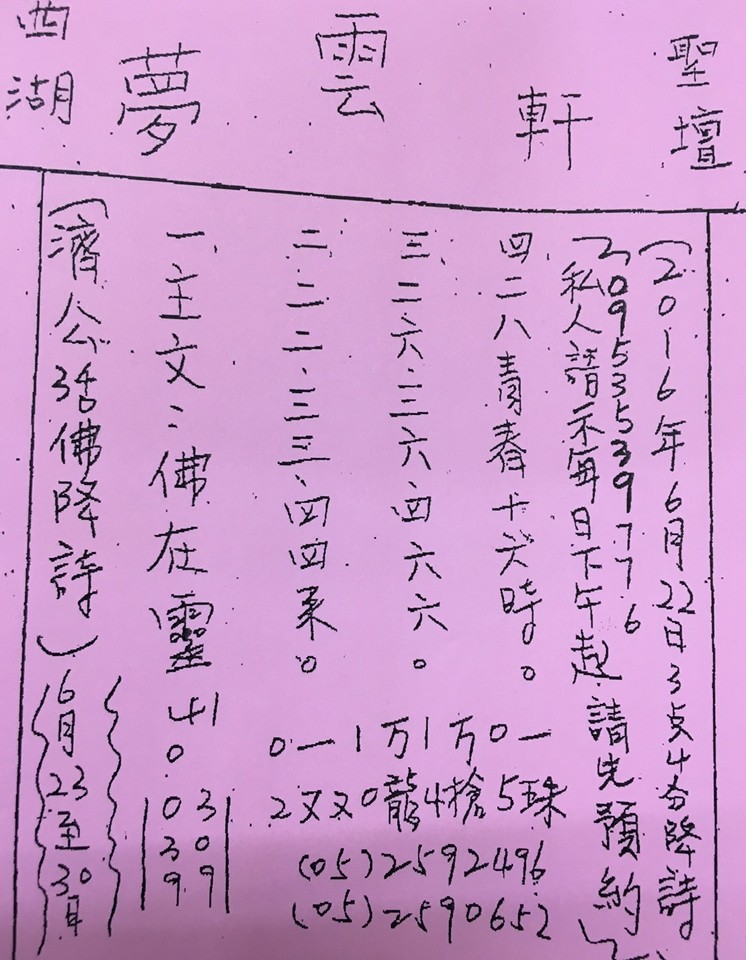 西湖 夢雲軒 聖壇
(濟公活佛降詩)
6月23至30日
一、主文:佛在靈
41
0
03
30
99
二、二二.三三.四四。
三、二六.三六四六六。
四、二八青春十六時。
0一1万1万0一
2又又0龍4槍5珠
(05)2592496
(05)2590652
(私人請示每日下午起請先預約)
0953539776
(2016年6月22日3点4分降詩)